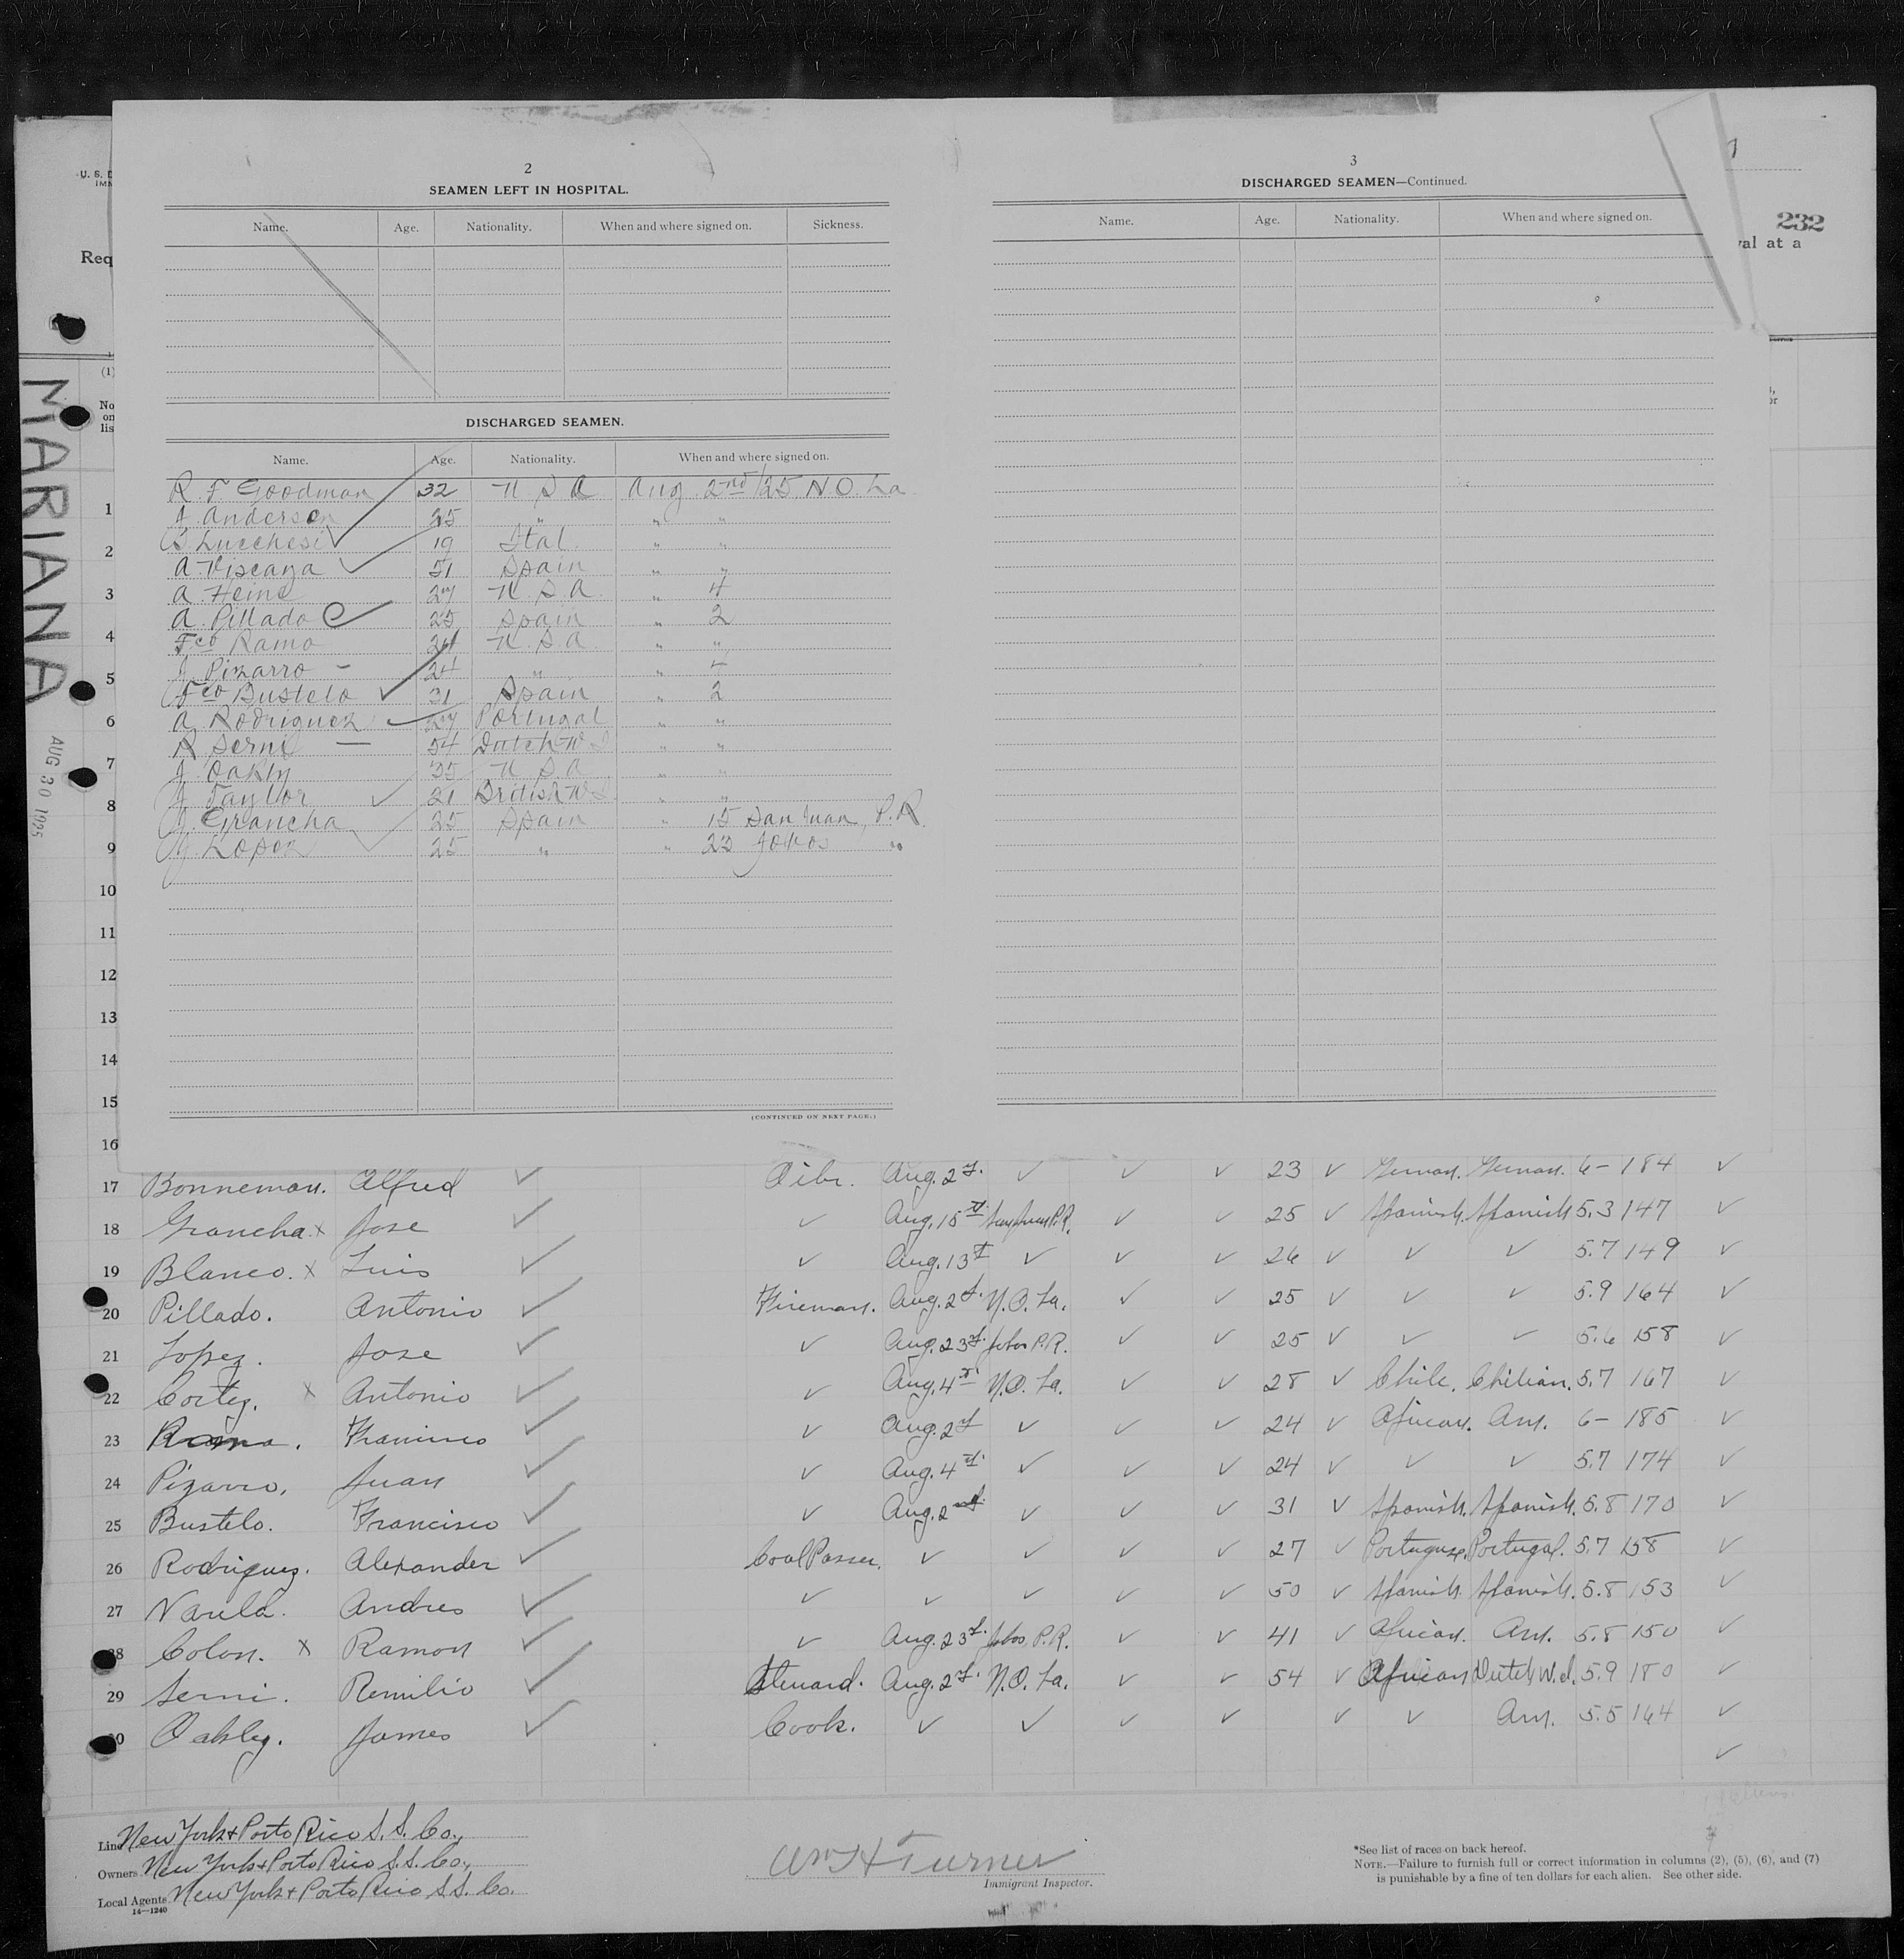 2
SEAMEN LEFT IN HOSPITAL.
Name. Age. Nationality. When and where signed on. Sickness.
DISCHARGED SEAMEN.
Name. Age. Nationality. When and where signed on.
R F Goodman 32 U S A Aug 2nd/25 N O. La
J. Anderson 25 " " "
B Lucchesi 19 Ital. " "
A. Viscaya 51 Spain " "
A. Heine 27 U. S. A. " 4
A. Pillado 25 Spain " 2
Fco Ramo 24 U. S. A. " "
J. Pizarro - 24 " " 4
Fco Bustelo 31 Spain " 2
A. Rodriguez 27 Portugal " "
R Serni — 54 Dutch W I " "
J. Oakly 35 U S A " "
J Taylor 21 British W I. " "
J. Grancha 25 Spain " 15 San Juan, P.R.
J. Lopez 25 " " 23 Jobos "
(CONTINUED ON NEXT PAGE.)
3
DISCHARGED SEAMEN—Continued.
Name. Age. Nationality. When and where signed on.
U. S. D
IMM
Req
232
val at a
(1)
No
on
lis
or
MARIANA
AUG 30 1925
1
2
3
4
5
6
7
8
9
10
11
12
13
14
15
16
17 Bonneman. Alfred ✓ Oiler. Aug. 2d. ✓ ✓ ✓ 23 ✓ German. German. 6- 184 ✓
18 Grancha. x Jose ✓ ✓ Aug. 15th San Juan P.R. ✓ ✓ 25 ✓ Spanish. Spanish 5.3 147 ✓
19 Blanco. x Luis ✓ ✓ Aug. 13th ✓ ✓ ✓ 26 ✓ ✓ ✓ 5.7 149 ✓
20 Pillado. Antonio ✓ Fireman. Aug. 2d. N.O. La. ✓ ✓ 25 ✓ ✓ ✓ 5.9 164 ✓
21 Lopez. Jose ✓ ✓ Aug. 23d. Jobos P.R. ✓ ✓ 25 ✓ ✓ ✓ 5.6 158 ✓
22 Cortez. x Antonio ✓ ✓ Aug. 4th. N.O. La. ✓ ✓ 28 ✓ Chile. Chilian. 5.7 167 ✓
23 Ramo. Francisco ✓ ✓ Aug. 2d ✓ ✓ ✓ 24 ✓ African. Am. 6- 185 ✓
24 Pizarro. Juan ✓ ✓ Aug. 4th. ✓ ✓ ✓ 24 ✓ ✓ ✓ 5.7 174 ✓
25 Bustelo. Francisco ✓ ✓ Aug. 2nd. ✓ ✓ ✓ 31 ✓ Spanish. Spanish. 5.8 170 ✓
26 Rodriguez. Alexander ✓ Coal Passer. ✓ ✓ ✓ ✓ 27 ✓ Portuguse. Portugal. 5.7 158 ✓
27 Varela. Andres ✓ ✓ ✓ ✓ ✓ ✓ 50 ✓ Spanish. Spanish. 5.8 153 ✓
28 Colon. x Ramon ✓ ✓ Aug. 23d. Jobos, P.R. ✓ ✓ 41 ✓ African. Am. 5.8 150 ✓
29 Serni. Remilio ✓ Steward. Aug. 2d. N.O. La. ✓ ✓ 54 ✓ African Dutch W.I. 5.9 180 ✓
30 Oakley. James ✓ Cook. ✓ ✓ ✓ ✓ ✓ ✓ Am. 5.5 164 ✓
✓
Line New York & Porto Rico S. S. Co.,
Owners New York & Porto Rico S.S. Co.,
Local Agents New York & Porto Rico S.S. Co.
14—1240
Wm H Turner
Immigrant Inspector.
*See list of races on back hereof.
NOTE.—Failure to furnish full or correct information in columns (2), (5), (6), and (7)
is punishable by a fine of ten dollars for each alien. See other side.